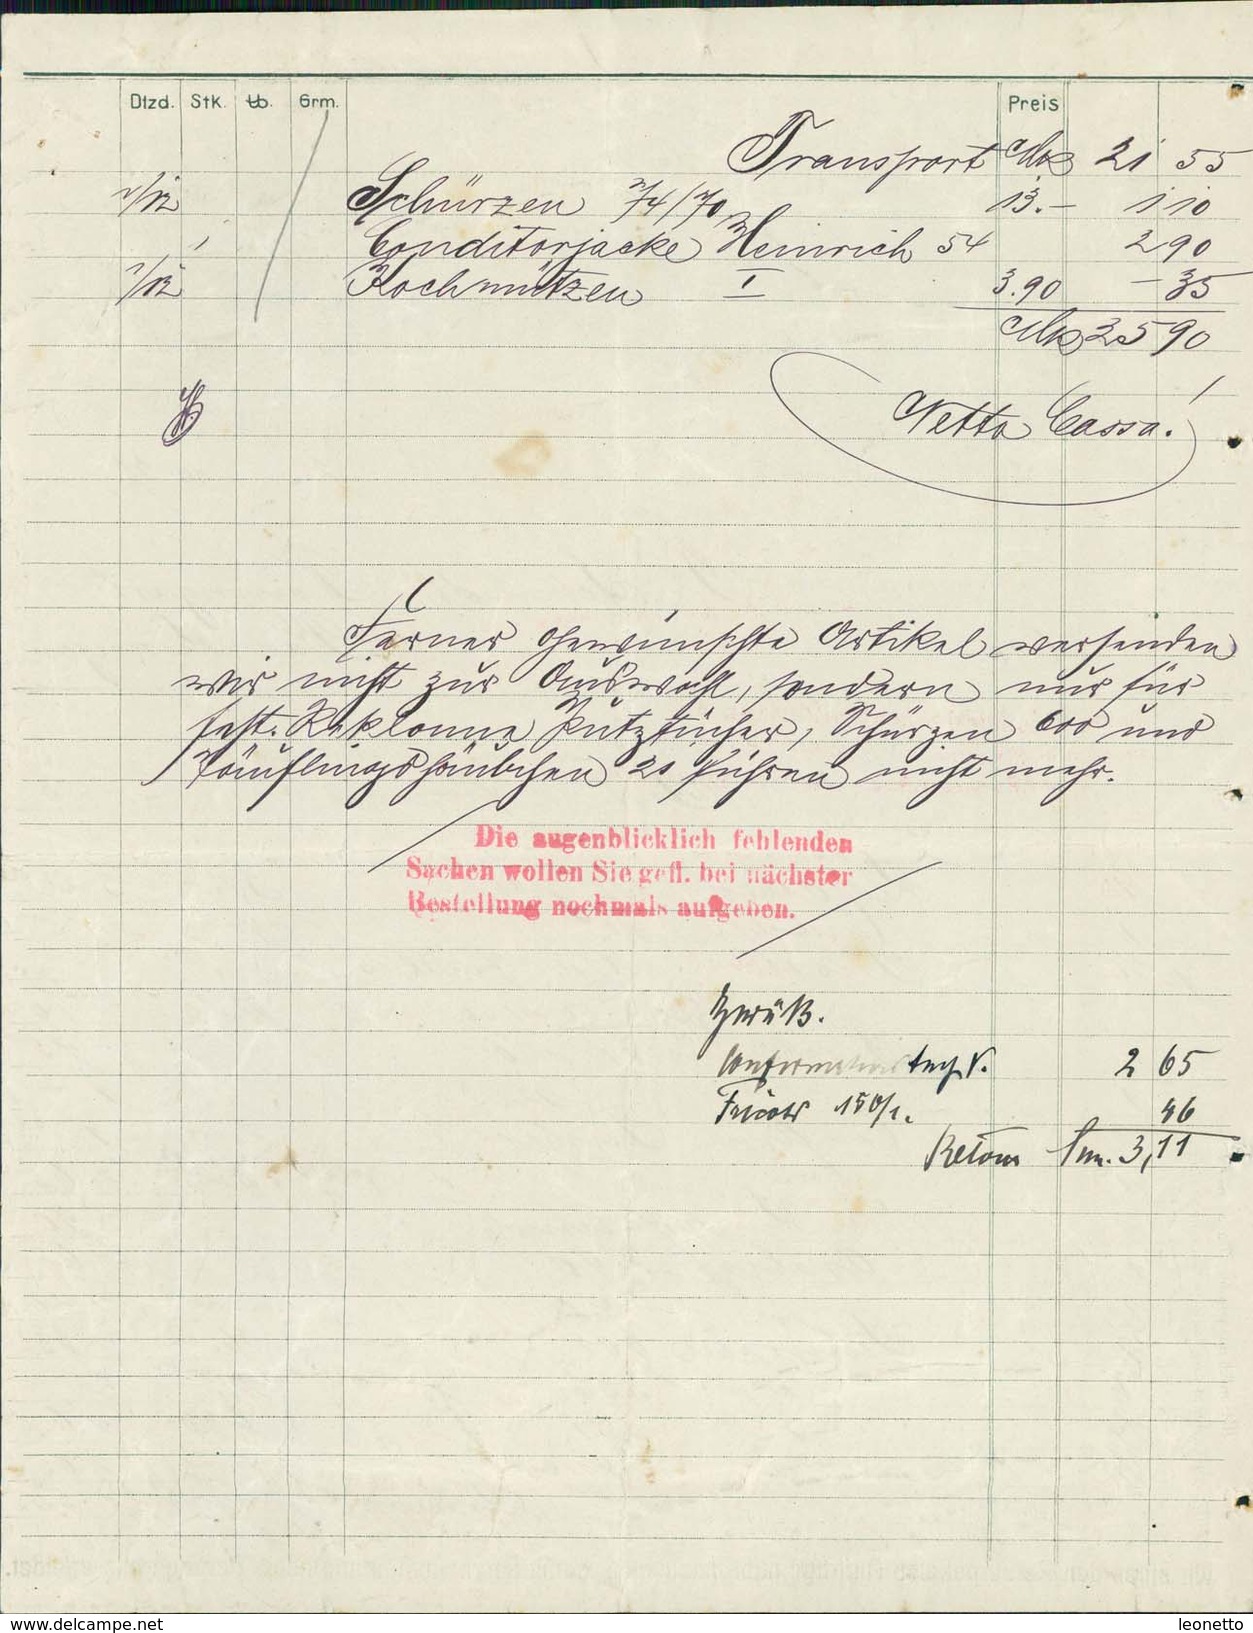 Dtzd. Stk. ℔. Grm. Preis
Transport Mk 21 55
1/12 Schürzen 74/70 13.- 1 10
1 Conditorjacke Heinrich 54 2 90
1/12 Kochmützen I 3.90 - 35
Mk 25 90
Netto Cassa!
Ferner gewünschte Artikel versenden
wir nicht zur Auswahl, sondern nur für
fest. Reklame Putztücher, Schürzen 600 und
Täuflingshäubchen 20 führen nicht mehr.
Die augenblicklich fehlenden
Sachen wollen Sie gefl. bei nächster
Bestellung nochmals aufgeben.
zurück.
2 65
Tricots 150/1. 46
Retour 3,11
www.delcampe.net leonetto